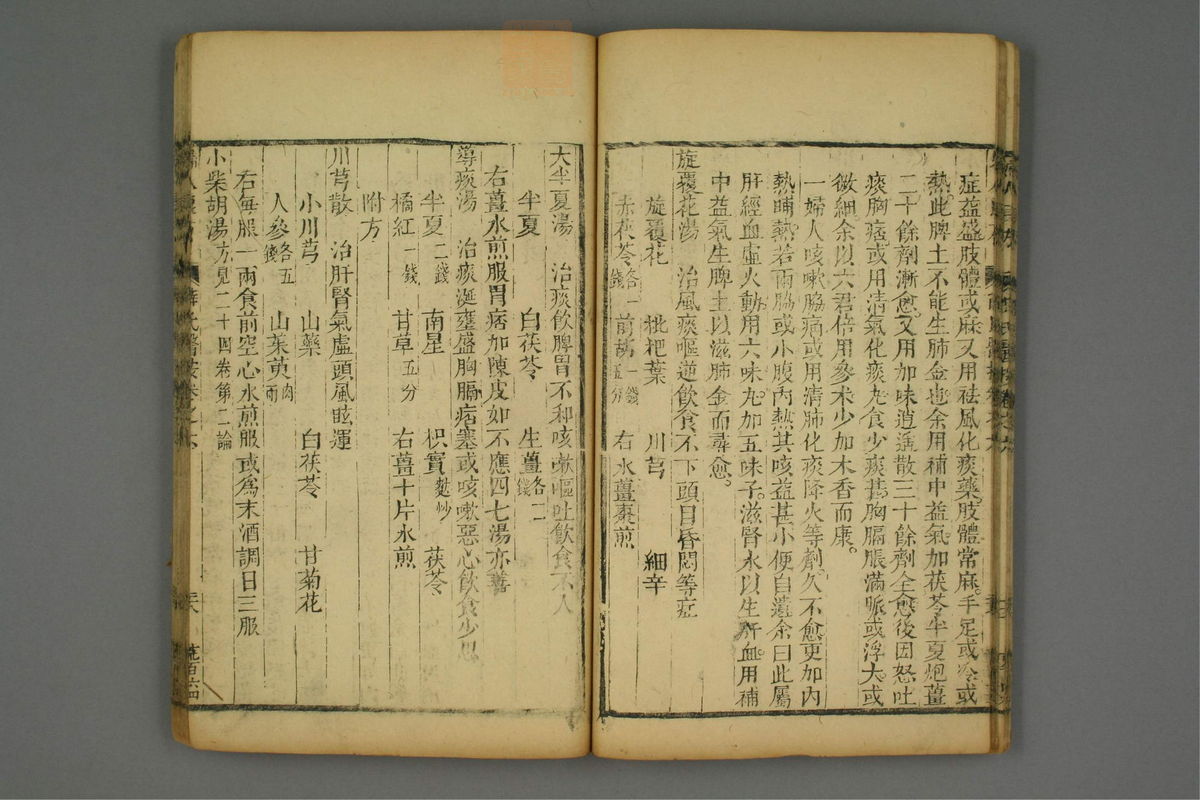 症益盛肢體或麻又用祛風化痰藥肢體常麻手足或冷或
熱此脾土不能生肺金也余用補中益氣加茯苓半夏炮薑
二十餘劑漸愈又用加味逍遙散三十餘劑全愈後因怒吐
痰胸痞或用清氣化痰丸食少痰甚胸膈脹滿脈或浮大或
微細余以六君倍用參朮少加木香而康
一婦人咳嗽脇痛或用清肺化痰降火等劑久不愈更加內
熱晡熱若兩脇或小腹內熱其咳益甚小便自遺余曰此屬
肝經血虛火動用六味丸加五味子滋腎水以生肝血用補
中益氣生脾土以滋肺金而尋愈
旋覆花湯　治風痰嘔逆飲食不下頭目昏悶等症
旋覆花　枇杷葉　川芎　細辛
赤茯苓各一錢　前胡一錢五分　右水薑棗煎
大半夏湯　治痰飲脾胃不和咳嗽嘔吐飲食不入
半夏　白茯苓　生薑各二錢
右薑水煎服胃痞加陳皮如不應四七湯亦善
導痰湯　治痰涎壅盛胸膈痞塞或咳嗽惡心飲食少思
半夏二錢　南星　枳實麩炒　茯苓
橘紅一錢　甘草五分　右薑十片水煎
附方
川芎散　治肝腎氣虛頭風眩運
小川芎　山藥　白茯苓　甘菊花
人參各五錢　山茱萸肉一兩
右每服一兩食前空心水煎服或爲末酒調日三服
小柴胡湯方見二十四卷第二論
薛氏醫按卷之六